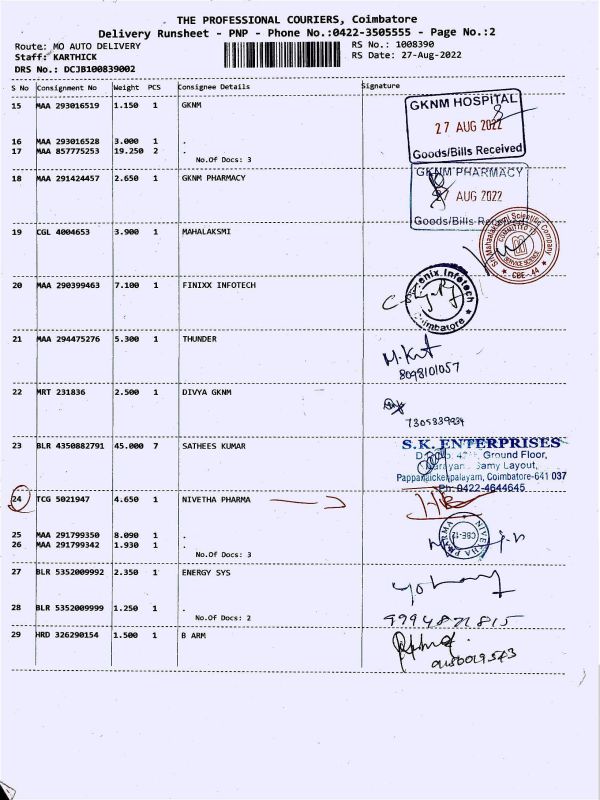 THE PROFESSIONAL COURIERS, Coimbatore
Delivery Runsheet - PNP - Phone No.:0422-3505555 - Page No.:2
Route: MO AUTO DELIVERY RS No.: 1008390
Staff: KARTHICK RS Date: 27-Aug-2022
DRS No.: DCJB100839002
S No Consignment No Weight PCS Consignee Details Signature
15 MAA 293016519 1.150 1 GKNM
GKNM HOSPITAL
27 AUG 2022
Goods/Bills Received
16 MAA 293016528 3.000 1 .
17 MAA 857775253 19.250 2 .
No.Of Docs: 3
18 MAA 291424457 2.650 1 GKNM PHARMACY
GKNM PHARMACY
AUG 2022
Goods/Bills
19 CGL 4004653 3.900 1 MAHALAKSMI
Sri Mahaalakshmi Scientific Company
COMMITTED TO
SERVICE SCIENCE
* CBE - 44 *
20 MAA 290399463 7.100 1 FINIXX INFOTECH
enix Infotech
Coimbatore *
21 MAA 294475276 5.300 1 THUNDER
8098101057
22 MRT 231836 2.500 1 DIVYA GKNM
7305339934
23 BLR 4350882791 45.000 7 SATHEES KUMAR
S.K. ENTERPRISES
Ground Floor,
Layout,
Coimbatore-641 037
Ph: 0422-4644645
24 TCG 5021947 4.650 1 NIVETHA PHARMA
25 MAA 291799350 8.090 1 .
26 MAA 291799342 1.930 1 .
No.Of Docs: 3
NIVETHA PHARMA
CBE-12
27 BLR 5352009992 2.350 1 ENERGY SYS
28 BLR 5352009999 1.250 1 .
No.Of Docs: 2
9994871815
29 HRD 326290154 1.500 1 B ARM